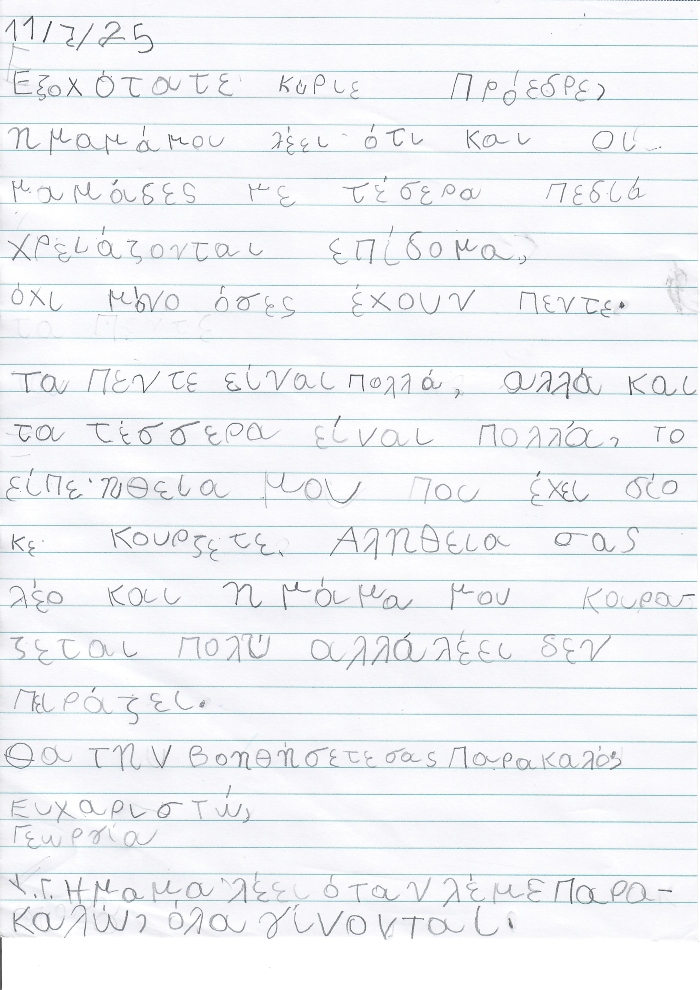 11/7/25
Εξοχότατε κύριε Πρόεδρε,
η μαμά μου λέει ότι και οι
μαμάδες με τέσερα πεδιά
χρειάζονται επίδομα,
όχι μόνο όσες έχουν πεντε.
τα πεντε είναι πολλά, αλλά και
τα τέσσερα είναι πολλά, το
είπε η θεία μου που έχει
κε κουρζετε. Αληθεια σας
λέο και η μάμα μου κουρα-
ζεται πολύ αλλά λέει δεν
πειράζει.
Θα την βοηθήσετε σας παρακαλός
Ευχαριστώ,
Γεωργία
Υ.Γ. Η μαμα λέει όταν λέμε παρα-
καλώ, όλα γίνονται.